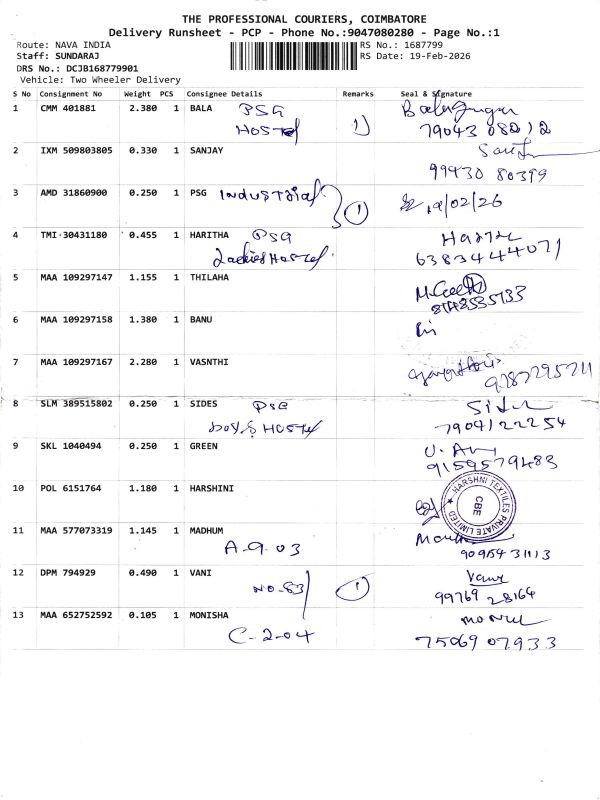 THE PROFESSIONAL COURIERS, COIMBATORE
Delivery Runsheet - PCP - Phone No.:9047080280 - Page No.:1
Route: NAVA INDIA
RS No.: 1687799
Staff: SUNDARAJ
RS Date: 19-Feb-2026
DRS No.: DCJB168779901
Vehicle: Two Wheeler Delivery
S No Consignment No Weight PCS Consignee Details Remarks Seal & Signature
1 CMM 401881 2.380 1 BALA PSG
Hostel 1)
79043 08212
2 IXM 509803805 0.330 1 SANJAY
99430 80399
3 AMD 31860900 0.250 1 PSG Industrial 1 19/02/26
4 TMI 30431180 0.455 1 HARITHA PSG
Ladies Hostel
6383444071
5 MAA 109297147 1.155 1 THILAHA
6 MAA 109297158 1.380 1 BANU
7 MAA 109297167 2.280 1 VASNTHI
9287295211
8 SLM 389515802 0.250 1 SIDES PSG
Boys Hostel
7904122254
9 SKL 1040494 0.250 1 GREEN
9159579483
10 POL 6151764 1.180 1 HARSHINI
HARSHNI TEXTILES PRIVATE LIMITED
CBE
11 MAA 577073319 1.145 1 MADHUM
A-9-03
12 DPM 794929 0.490 1 VANI Vani
No-83 1
99769 28164
13 MAA 652752592 0.105 1 MONISHA
C-2-04
75069 07933